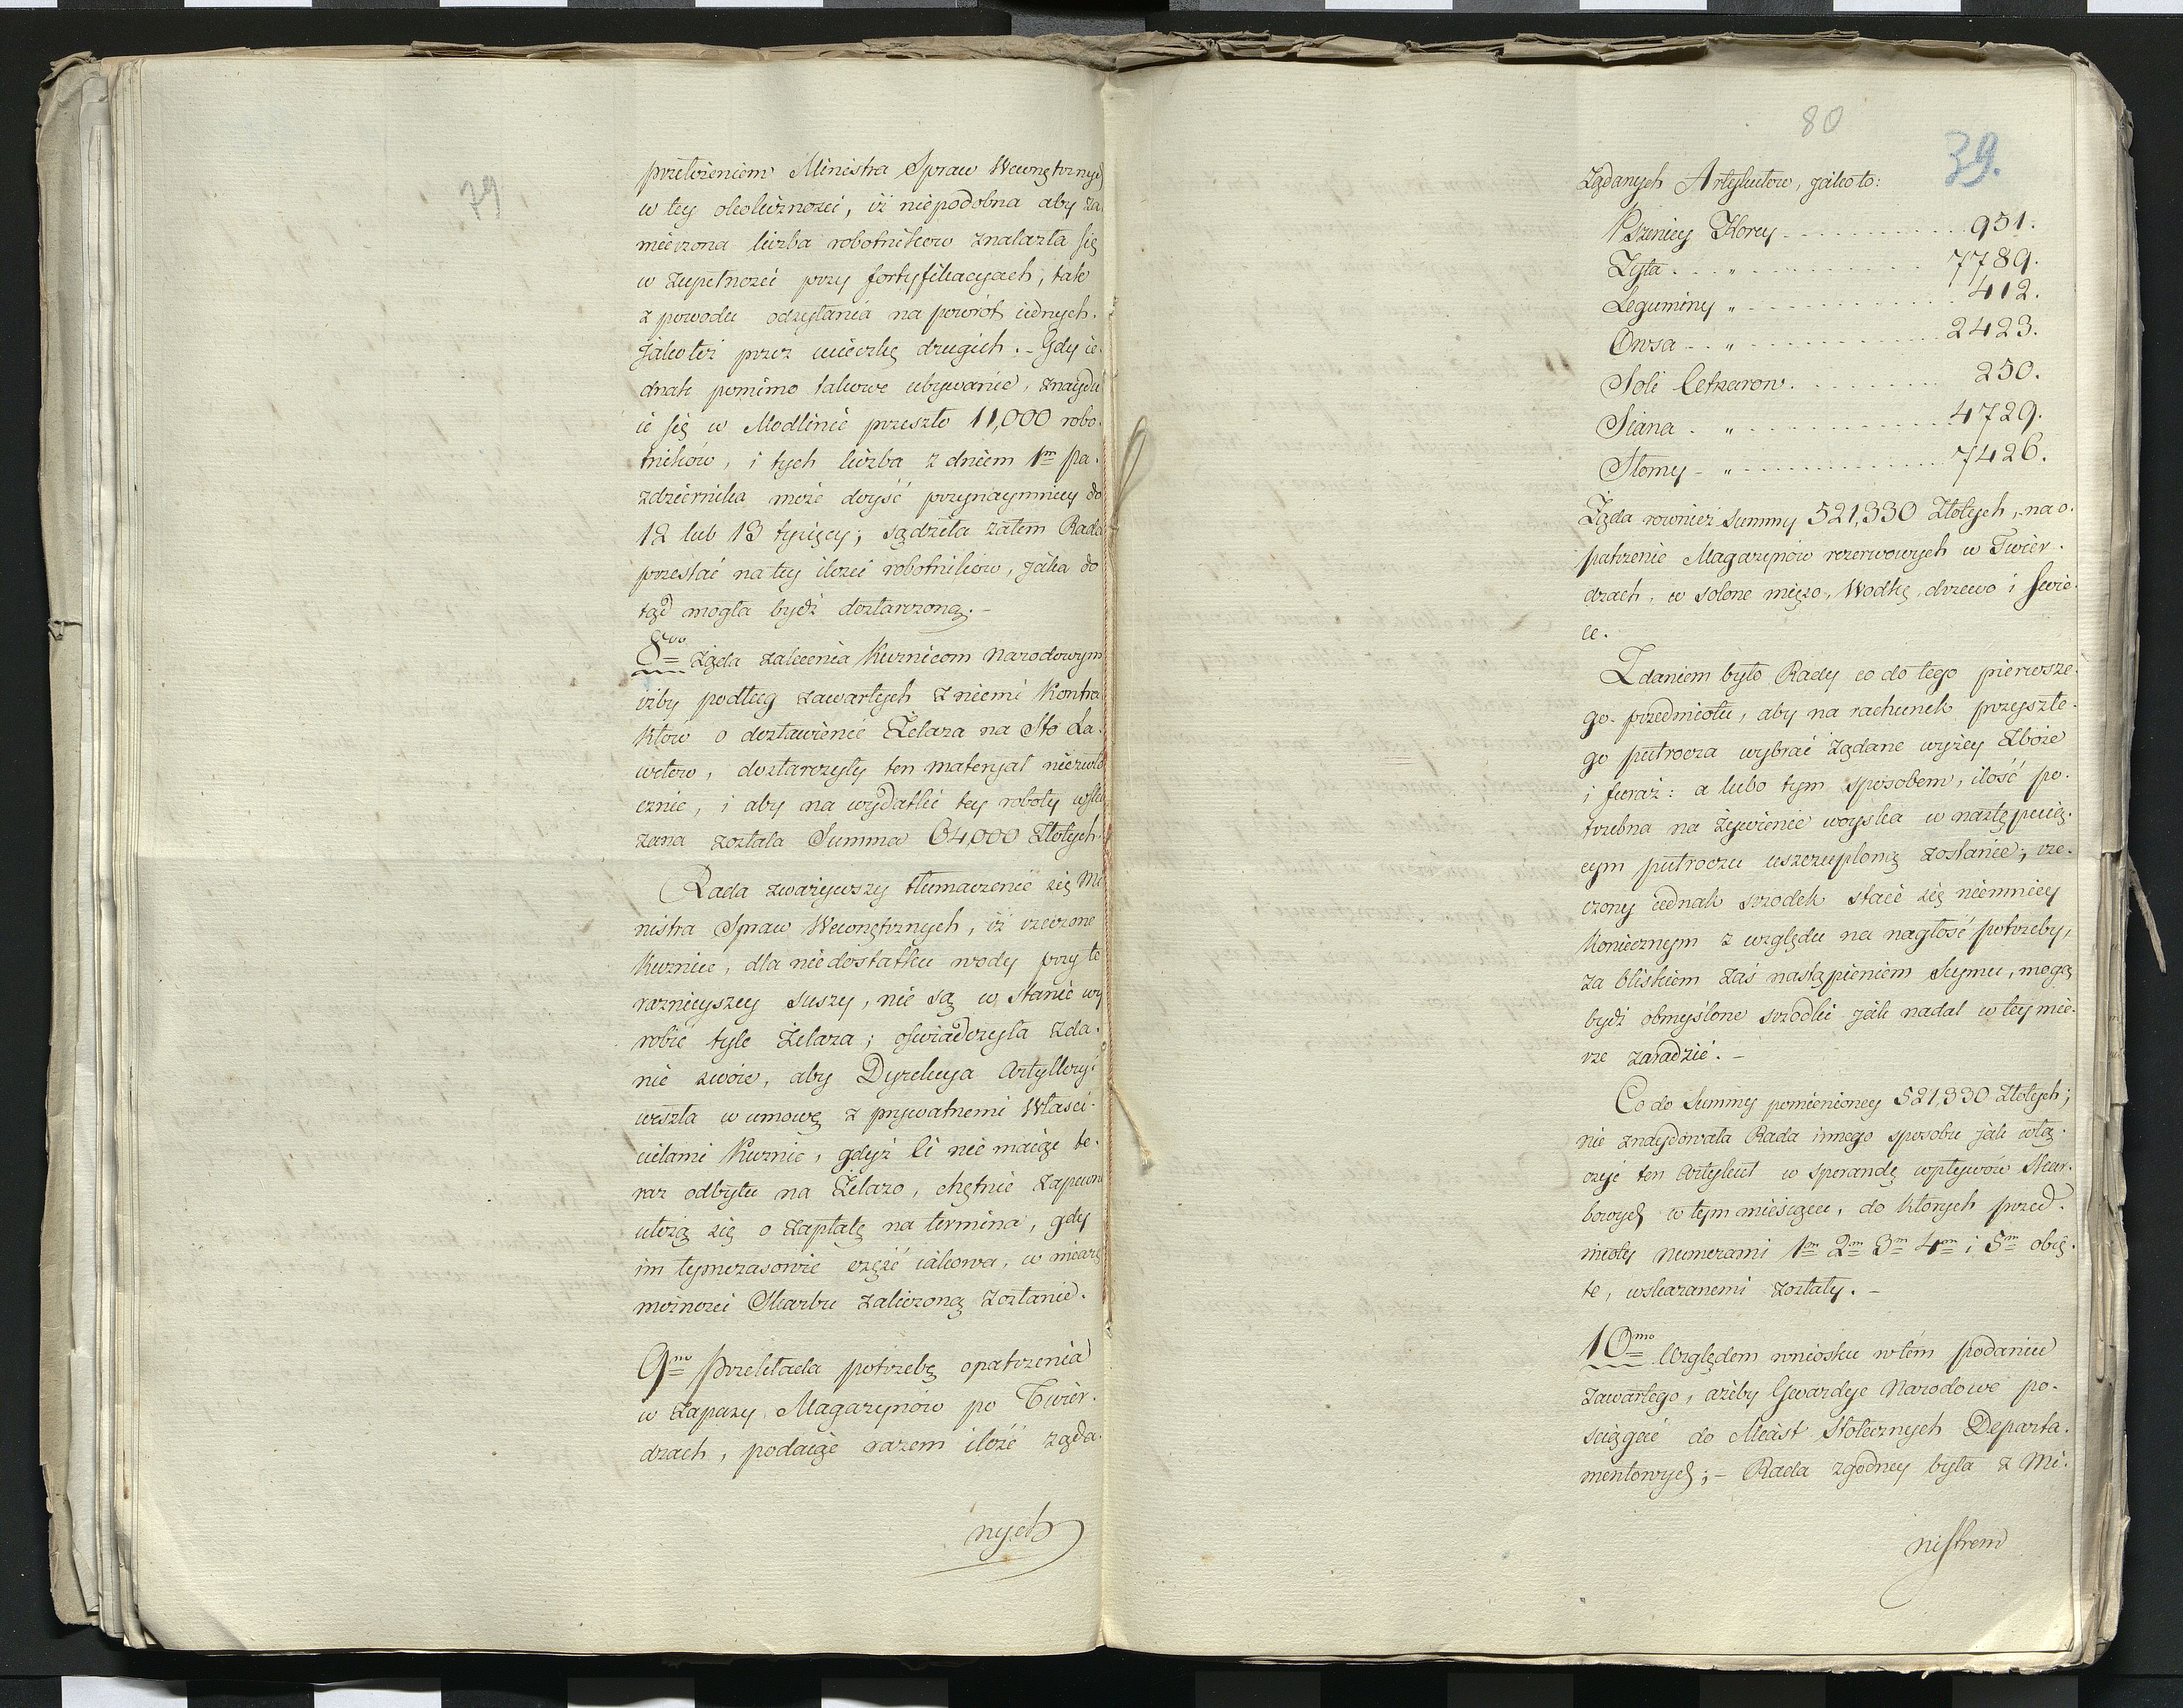 79
przełożeniem Ministra Spraw Wewnętrznych
w tey okoliczności, iż niepodobna aby za
mieczona liczba robotnikow znalazła się
w zupełności przy fortyfikacyach, tak
z powodu odsyłania na powrót iednych.
Jakoteż przez ucieczkę drugich. - Gdy ie.
dnak pomimo takowe ubywanie, znaydu
ie się w Modlinie przeszło 11,000 robo.
tników, i tych liczba z dniem 1m pa.
zdziernika może doyść przynaymniey do
12 lub 13 tysięcy; sądziła zatem Rada
przestać na tey ilości robotnikow, jaka do
tąd mogła bydź dostarczoną. -
8vo Żąda zalecenia Kuznicom Narodowym
iżby podług zawartych z niemi Kontra
któw o dostawienie Żelaza na Sto La.
wetow, dostarczyły ten materyał niezwło
cznie, i aby na wydatki tey roboty wska
zana została Summa 64,000 Złotych.
Rada zważywszy tłumaczenie się Mi
nistra Spraw Wewnętrznych, iż rzeczone
Kuznice, dla niedostatku wody przy te
raznieyszey suszy, nie są w stanie wy
robić tyle Żelaza; oswiadczyła zda.
nie swoie, aby Dyrekcya Artylleryi
weszła w umowę z prywatnemi Właści.
cielami Kuznic, gdyż Ci nie maiąc te.
raz odbytu na Żelazo, chętnie zapewne
ułożą się o zapłatę na termina, gdy
im tymczasowie część iakowa, w miarę
możności Skarbu zaliczoną zostanie.
9no Przekłada potrzebę opatrzenia
w zapasy Magazynów po Twier.
dzach, podaiąc razem ilość żąda.
nych
80
39.
Żądanych Artykułow, jako to:
Pszenicy Korcy - - - - - - - 951.
Żyta . . . " . . . . . . . . 7789.
Leguminy " - - - - - - - 412.
Owsa - . . " - - - - - - - 2423.
Soli Cetnarow . . . . . . . . 250.
Siana . " - - - - - - - 4729.
Słomy - " - - - - - - - 7426.
Żąda rownież Summy 521,330 Złotych, na o.
patrzenie Magazynów rezerwowych w Twier.
dzach, w solone mięso, Wodkę, drzewo i Swie.
ce.
Zdaniem było Rady co do tego pierwsze.
go przedmiotu, aby na rachunek przyszłe.
go pułrocza wybrać żądane wyżey Zboże
i furaż: a lubo tym sposobem, ilość po.
trzebna na żywienie woyska w następuią.
cym pułroczu uszczuploną zostanie; rze.
czony iednak srodek staie się niemniey
Koniecznym z względu na nagłość potrzeby,
za bliskiem zaś nastąpieniem Seymu, mogą
bydź obmyślone srzodki jak nadal w tey mie.
rze zaradzić. -
Co do Summy pomienioney 521,330 Złotych;
nie znaydowała Rada innego sposobu jak włą.
czyć ten Artykuł w sperandę wpływów Skar.
bowych w tym miesiącu, do których przed.
mioty Numerami 1m 2m 3m 4m i 5m obię.
te, wskazanemi zostały. -
10mo Względem wniosku w tém podaniu
zawartego, ażeby Gwardye Narodowe po.
sciągać do Miast Stołecznych Departa.
mentowych; - Rada zgodney była z Mi.
nistrem